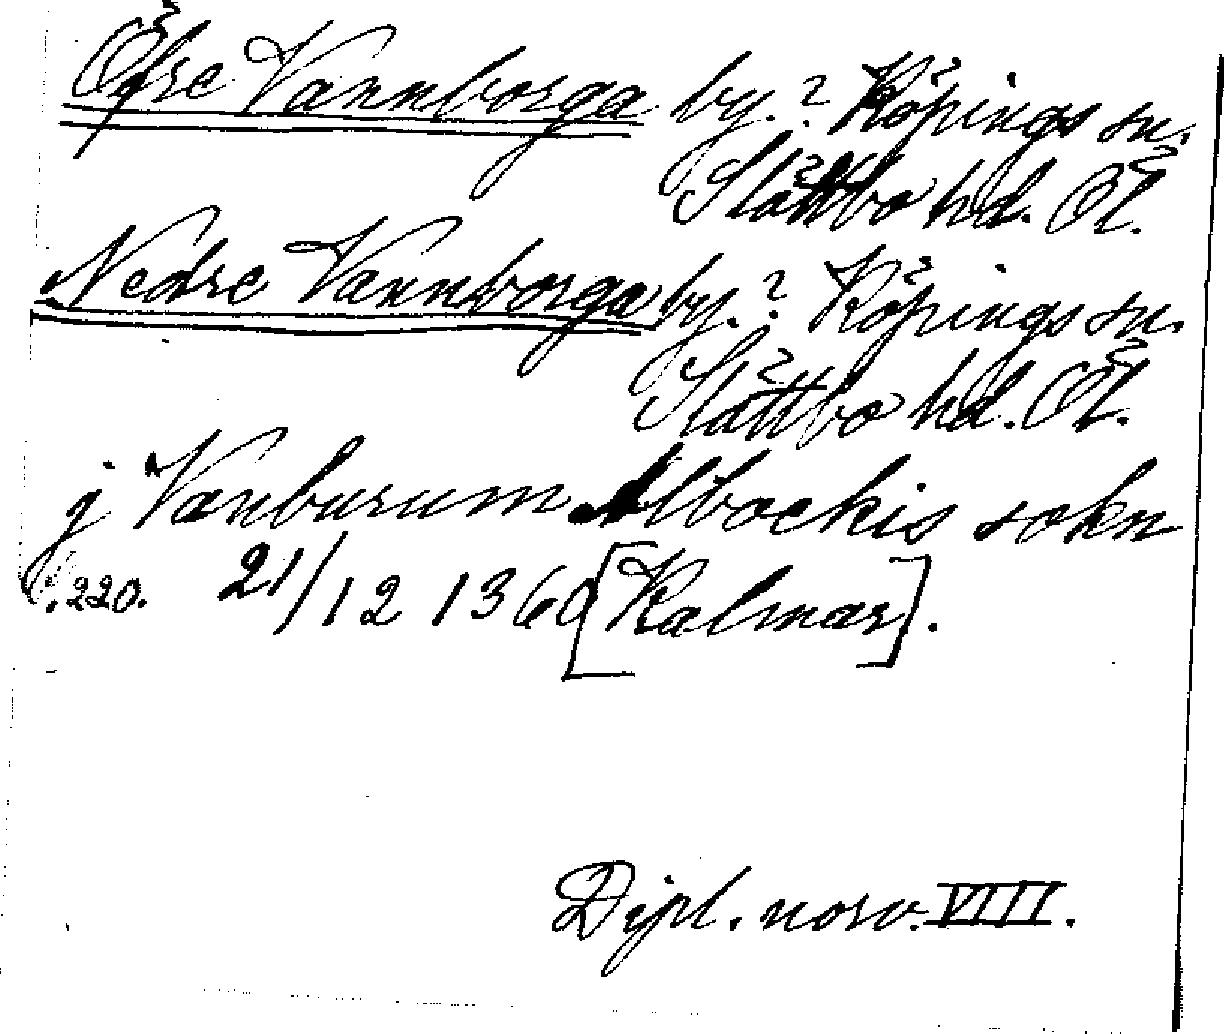 Öfre Vannborga by.? Köpings sn.
Slåttbo hd. Öl.
Nedre Vannborga by.? Köpings sn.
Slåttbo hd. Öl.
j Vanburum Albœkis sokn
220. 21/12 1360 [Kalmar].
Dipl. norv. VIII.